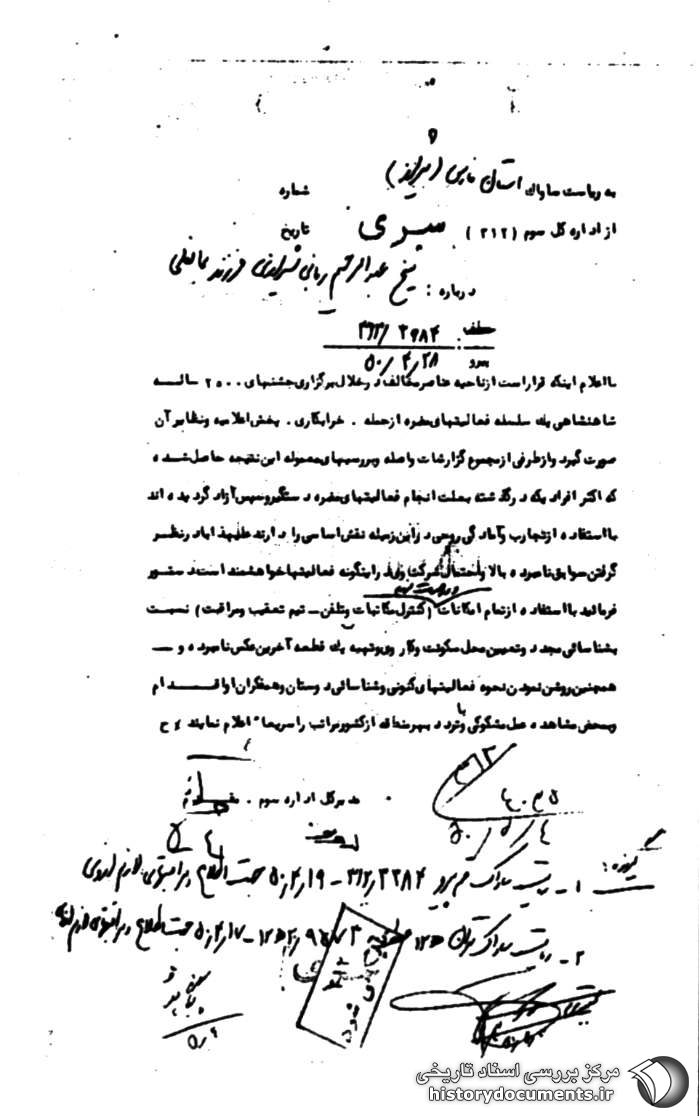 به ریاست ساواک استان فارس (شیراز) شماره
از اداره کل سوم (۳۱۲) سری تاریخ
درباره : شیخ عبدالرحیم ربانی شیرازی فرزند
عطف
پیرو : ۳۱۲/۲۹۸۴
۵۰/۴/۲۸
با اعلام اینکه قرار است از ناحیه عناصر مخالف در خلال برگزاری جشنهای ۲۵۰۰ ساله
شاهنشاهی یک سلسله فعالیتهای مضره از جمله . خرابکاری . پخش اعلامیه و نظایر آن
صورت گیرد و از طرفی از مجموع گزارشات واصله و بررسیهای معموله این نتیجه حاصل شده
که اکثر افرادیکه در گذشته بعلت انجام فعالیتهای مضره دستگیر و سپس آزاد گردیده اند
با استفاده از تجارب و آمادگی روحی در این زمینه نقش اساسی را دارند علیهذا با در نظر
گرفتن سوابق نامبرده بالا و احتمال شرکت در اینگونه فعالیتها خواهشمند است دستور
فرمائید با استفاده از تمام امکانات (کنترل مکاتبات و تلفن - تیم تعقیب و مراقبت) نسبت
بشناسائی مجدد و تعیین محل سکونت و کار وی و تهیه یک قطعه آخرین عکس نامبرده و -
همچنین روشن نمودن نحوه فعالیتهای کنونی و شناسائی دوستان و همفکران او اقدام
و بمحض مشاهده عمل مشکوکی و یا تردد بهر منطقه از کشور مراتب را سریعا" اعلام نمایند ح
مدیر کل اداره سوم . مقدم
۳۱۲
گیرنده :
۱ - ریاست ساواک ۳۱۲/ - ۵۰/۴/۱۹ جهت اطلاع و مراقبتهای لازم
۲ - ریاست ساواک تهران - ۵۰/۴/۱۷ جهت اطلاع و مراقبتهای لازم
مرکز بررسی اسناد تاریخی
historydocuments.ir